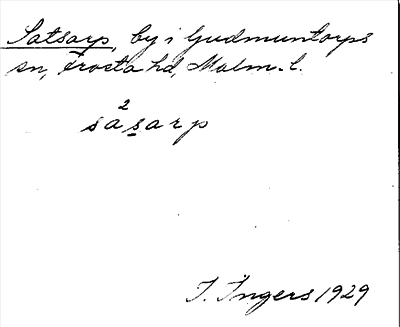 Satsarp, by i Gudmuntorps
sn, Frosta hd, Malm. l.
2
sasarp
I. Ingers 1929